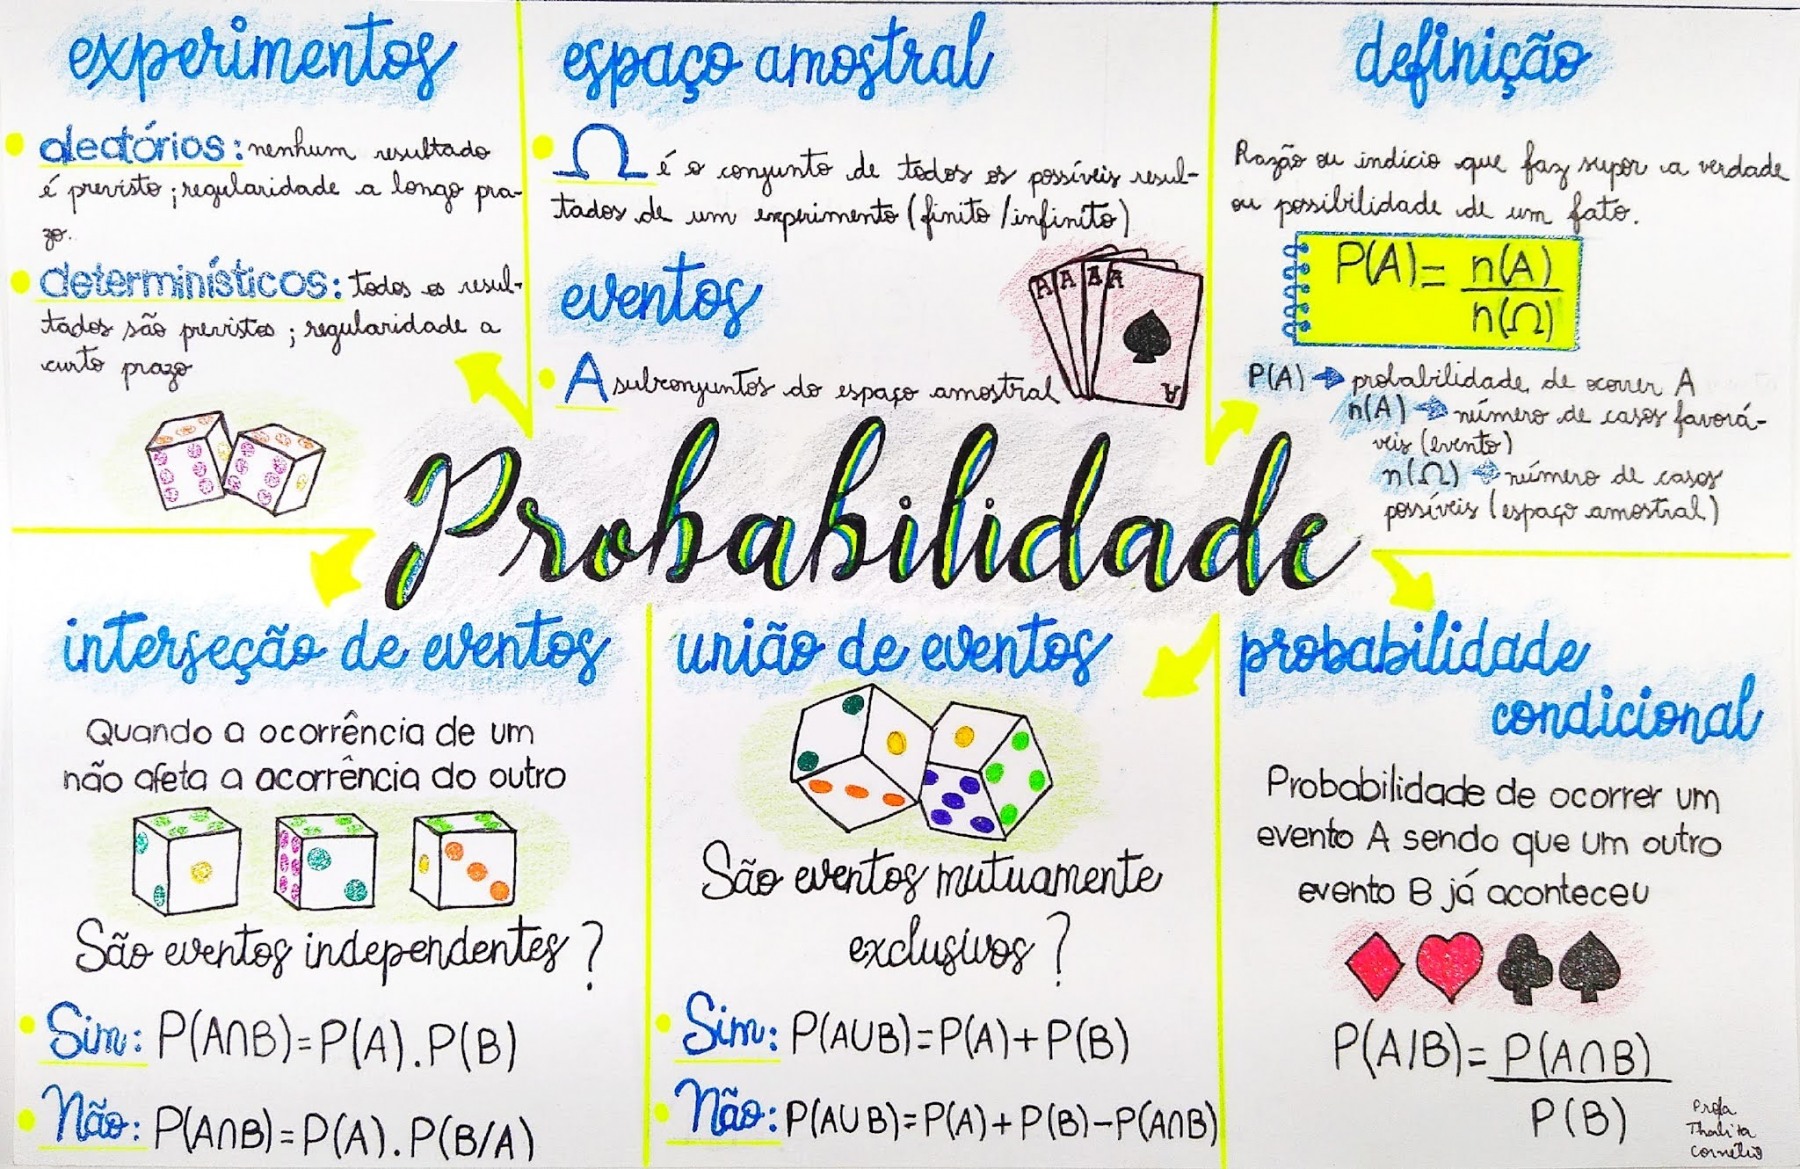 experimentos
aleatórios: nenhum resultado
é previsto; regularidade a longo pra-
zo.
determinísticos: todos os resul-
tados são previstos; regularidade a
curto prazo
espaço amostral
Ω é o conjunto de todos os possíveis resul-
tados de um experimento (finito/infinito)
eventos
A subconjuntos do espaço amostral
A A A A
A
definição
Razão ou indício que faz supor a verdade
ou possibilidade de um fato.
P(A)= n(A)
n(Ω)
P(A) → probabilidade de ocorrer A
n(A) → número de casos favorá-
veis (evento)
n(Ω) → número de casos
possíveis (espaço amostral)
Probabilidade
interseção de eventos
Quando a ocorrência de um
não afeta a acorrência do outro
São eventos independentes?
Sim: P(A∩B)=P(A).P(B)
Não: P(A∩B)=P(A).P(B/A)
união de eventos
São eventos mutuamente
exclusivos?
Sim: P(A∪B)=P(A)+P(B)
Não: P(A∪B)=P(A)+P(B)-P(A∩B)
probabilidade
condicional
Probabilidade de ocorrer um
evento A sendo que um outro
evento B já aconteceu
P(A/B)= P(A∩B)
P(B)
Profa
Thalita
Cornélio